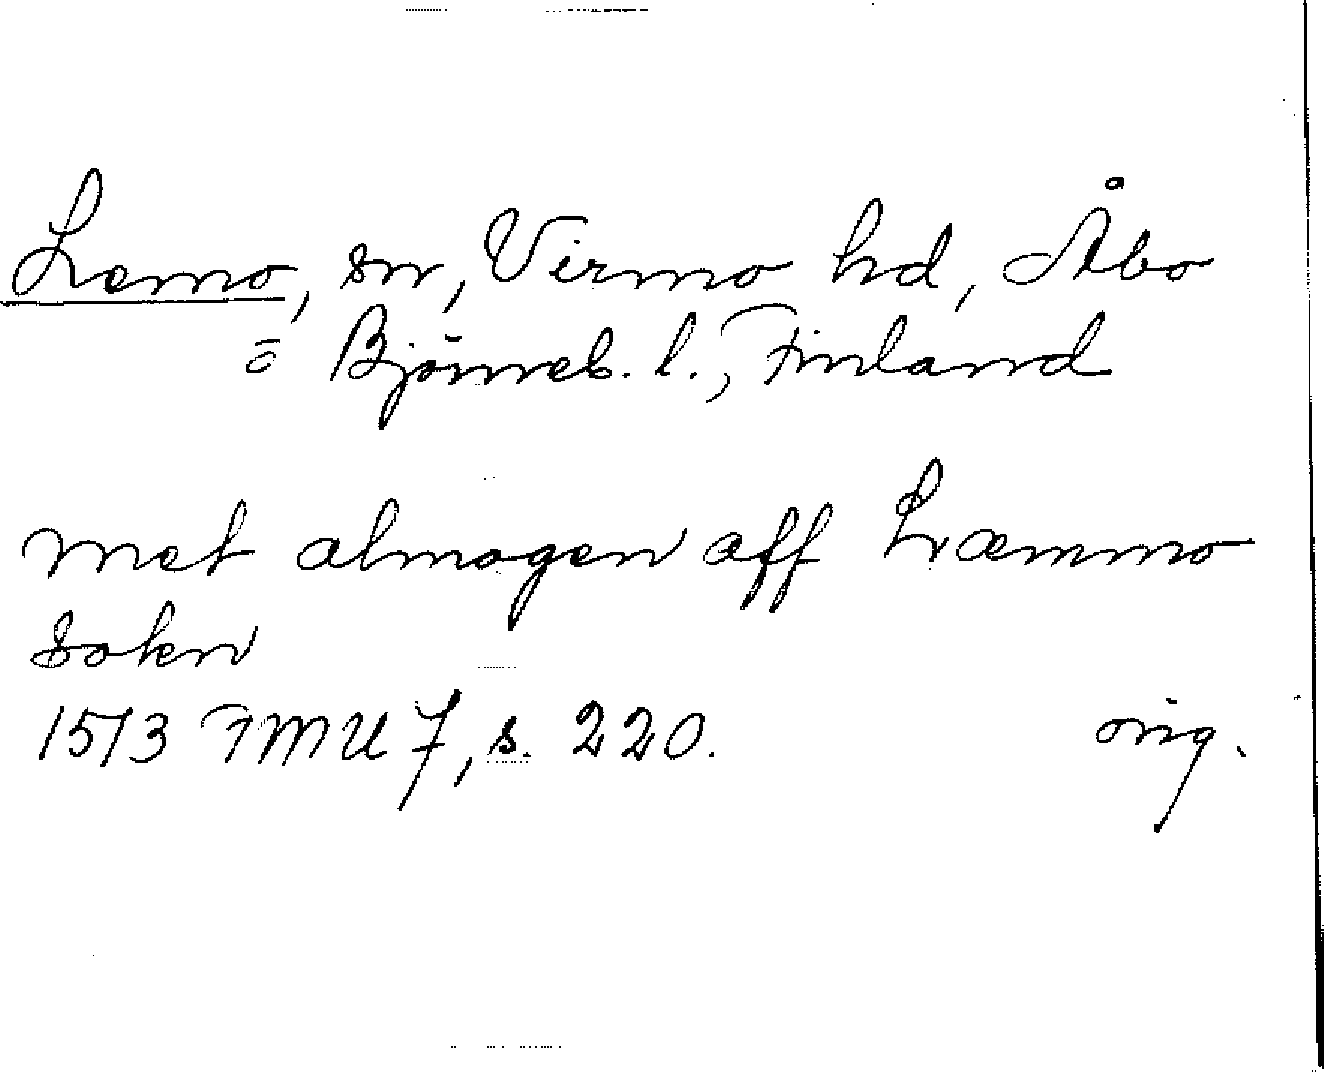 Lemo, sn, Virmo hd, Åbo
o Björneb. l., Finland
met almogen aff Læmmo
sokn
1513 FMU 7, s. 220. orig.